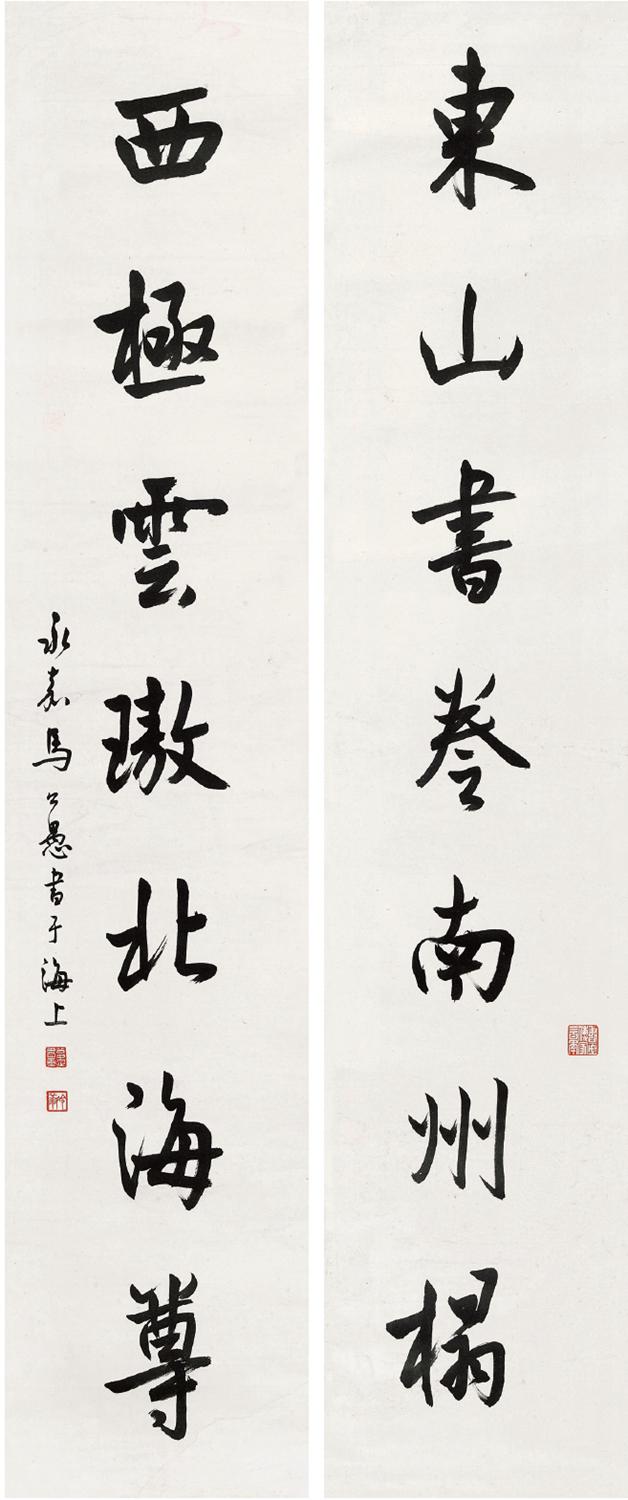 東山書卷南州榻
西極雲璈北海尊
永嘉馬公愚書于海上